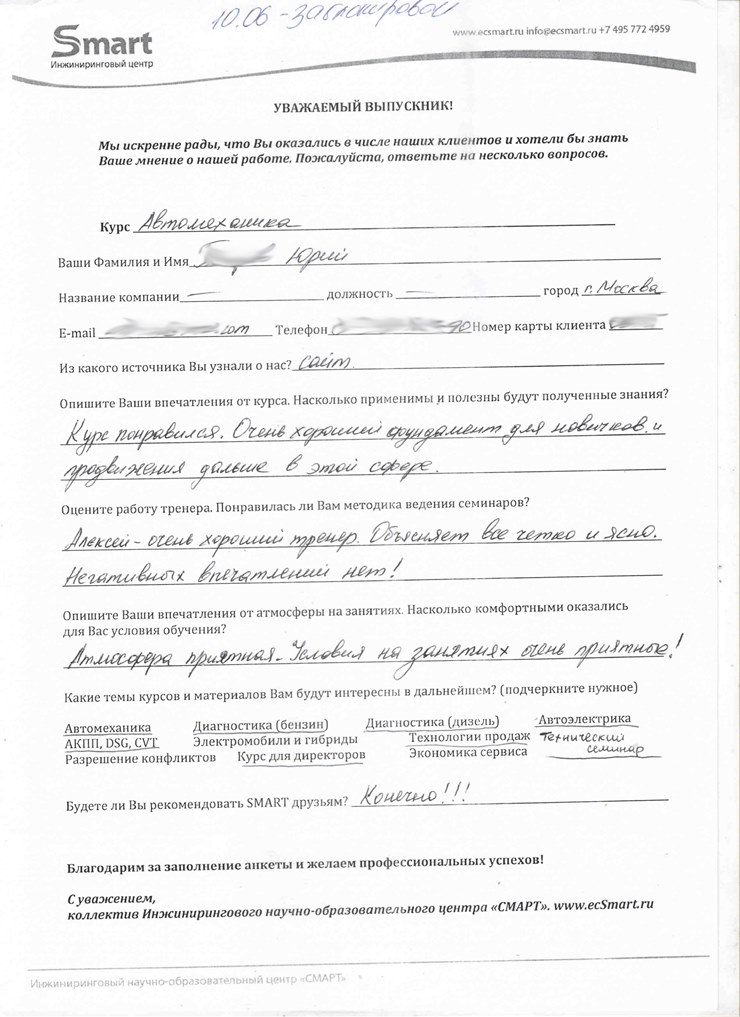 10.06 - заблокировал
Smart
Инжиниринговый центр
www.ecsmart.ru info@ecsmart.ru +7 495 772 4959
УВАЖАЕМЫЙ ВЫПУСКНИК!
Мы искренне рады, что Вы оказались в числе наших клиентов и хотели бы знать
Ваше мнение о нашей работе. Пожалуйста, ответьте на несколько вопросов.
Курс Автомеханика
Ваши Фамилия и Имя Юрий
Название компании — должность — город г. Москва
E-mail com Телефон 90 Номер карты клиента
Из какого источника Вы узнали о нас? сайт.
Опишите Ваши впечатления от курса. Насколько применимы и полезны будут полученные знания?
Курс понравился. Очень хороший фундамент для новичков и
продвижения дальше в этой сфере.
Оцените работу тренера. Понравилась ли Вам методика ведения семинаров?
Алексей - очень хороший тренер. Объясняет все четко и ясно.
Негативных впечатлений нет!
Опишите Ваши впечатления от атмосферы на занятиях. Насколько комфортными оказались
для Вас условия обучения?
Атмосфера приятная. Условия на занятиях очень приятные!
Какие темы курсов и материалов Вам будут интересны в дальнейшем? (подчеркните нужное)
Автомеханика Диагностика (бензин) Диагностика (дизель) Автоэлектрика
АКПП, DSG, CVT Электромобили и гибриды Технологии продаж Технический
Разрешение конфликтов Курс для директоров Экономика сервиса семинар
Будете ли Вы рекомендовать SMART друзьям? Конечно!!!
Благодарим за заполнение анкеты и желаем профессиональных успехов!
С уважением,
коллектив Инжинирингового научно-образовательного центра «СМАРТ». www.ecSmart.ru
Инжиниринговый научно-образовательный центр «СМАРТ»